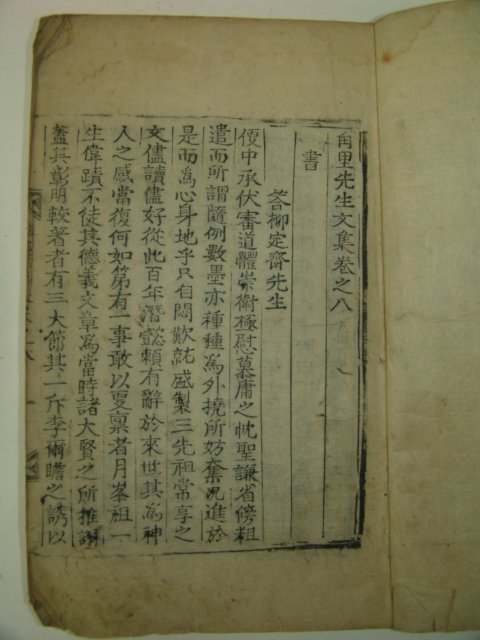 甪里先生文集卷之八
書
答柳定齋先生
便中承伏審道體崇衛極慰慕庸之忱聖謙省傍粗
遣而所謂隨例數墨亦種種爲外撓所妨奪况進於
是而爲心身地乎只自悶歎訧盛製三先祖常享之
文儘讀儘好從此百年潛懿賴有辭於來世其爲神
人之感當復何如第有一事敢以更稟者月峯祖一
生偉蹟不徒其德義文章爲當時諸大賢之所推謝
蓋其彰明較著者有三大節其一斥李爾瞻之誘以